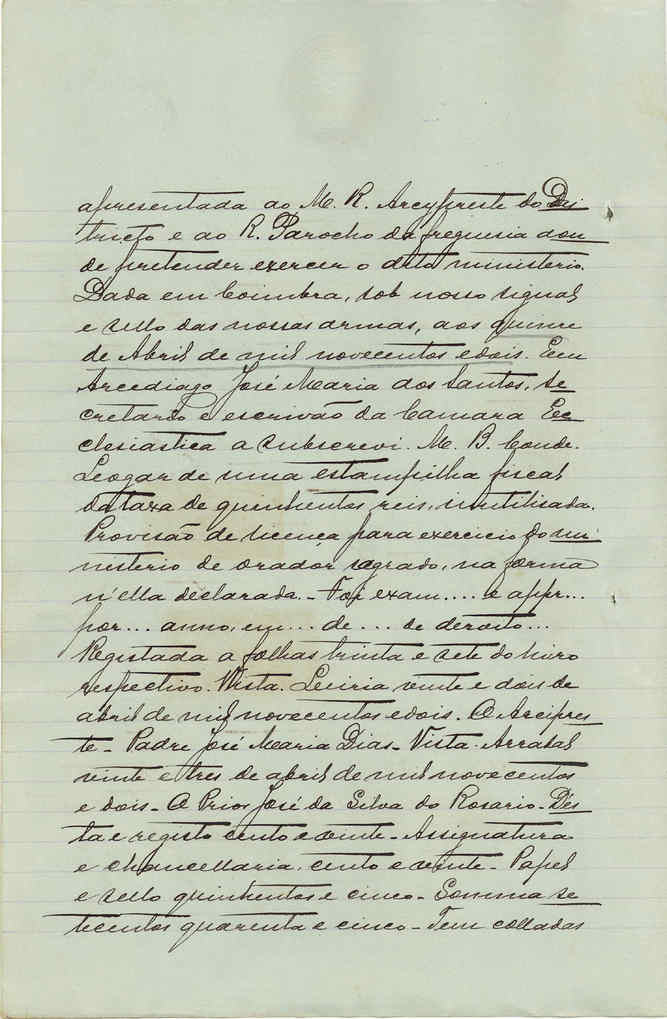 apresentada ao M. R. Arcypreste do Dis
tricto e ao R. Parocho da freguesia don
de pretender exercer o dito ministerio.
Dada em Coimbra, sob nosso signal
e sello das nossas armas, aos quinze
de Abril de mil novecentos e dois. E eu
Arcediago José Maria dos Santos, se
cretario e escrivão da Camara Ec
clesiastica a subscrevi. M. B. Conde.
Logar de uma estampilha fiscal
da taxa de quinhentos reis, inutilisada.
Provisão de licença para exercicio do mi
nisterio de orador sagrado, na forma
n'ella declarada. - Foi exam.... e appr...
por... anno, em... de ... de direito...
Registada a folhas trinta e sete do livro
respectivo. Vista. Leiria vinte e dois de
abril de mil novecentos e dois. O Arcipres
te - Padre José Maria Dias - Vista. Arrabal
vinte e tres de abril de mil novecentos
e dois - O Prior José da Silva do Rosario -
ta e registo cento e vinte - Assignatura
e chancellaria, cento e vinte - Papel
e sello quinhentos e cinco - Somma se
tecentos quarenta e cinco - Tem colladas